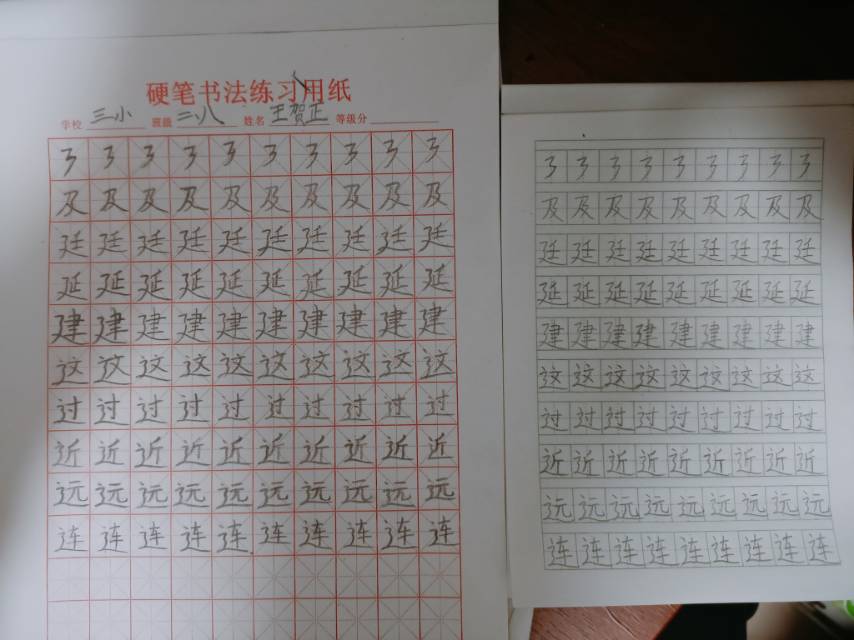 硬笔书法练习用纸
学校 三小 班级 二八 姓名 王贺正 等级分
及 及 及 及 及 及 及 及 及 及
廷 廷 廷 廷 廷 廷 廷 廷 廷 廷
延 延 延 延 延 延 延 延 延 延
建 建 建 建 建 建 建 建 建 建
这 这 这 这 这 这 这 这 这 这
过 过 过 过 过 过 过 过 过 过
近 近 近 近 近 近 近 近 近 近
远 远 远 远 远 远 远 远 远 远
连 连 连 连 连 连 连 连 连 连
及 及 及 及 及 及 及 及 及
廷 廷 廷 廷 廷 廷 廷 廷 廷
延 延 延 延 延 延 延 延 延
建 建 建 建 建 建 建 建 建
这 这 这 这 这 这 这 这 这
过 过 过 过 过 过 过 过 过
近 近 近 近 近 近 近 近 近
远 远 远 远 远 远 远 远 远
连 连 连 连 连 连 连 连 连